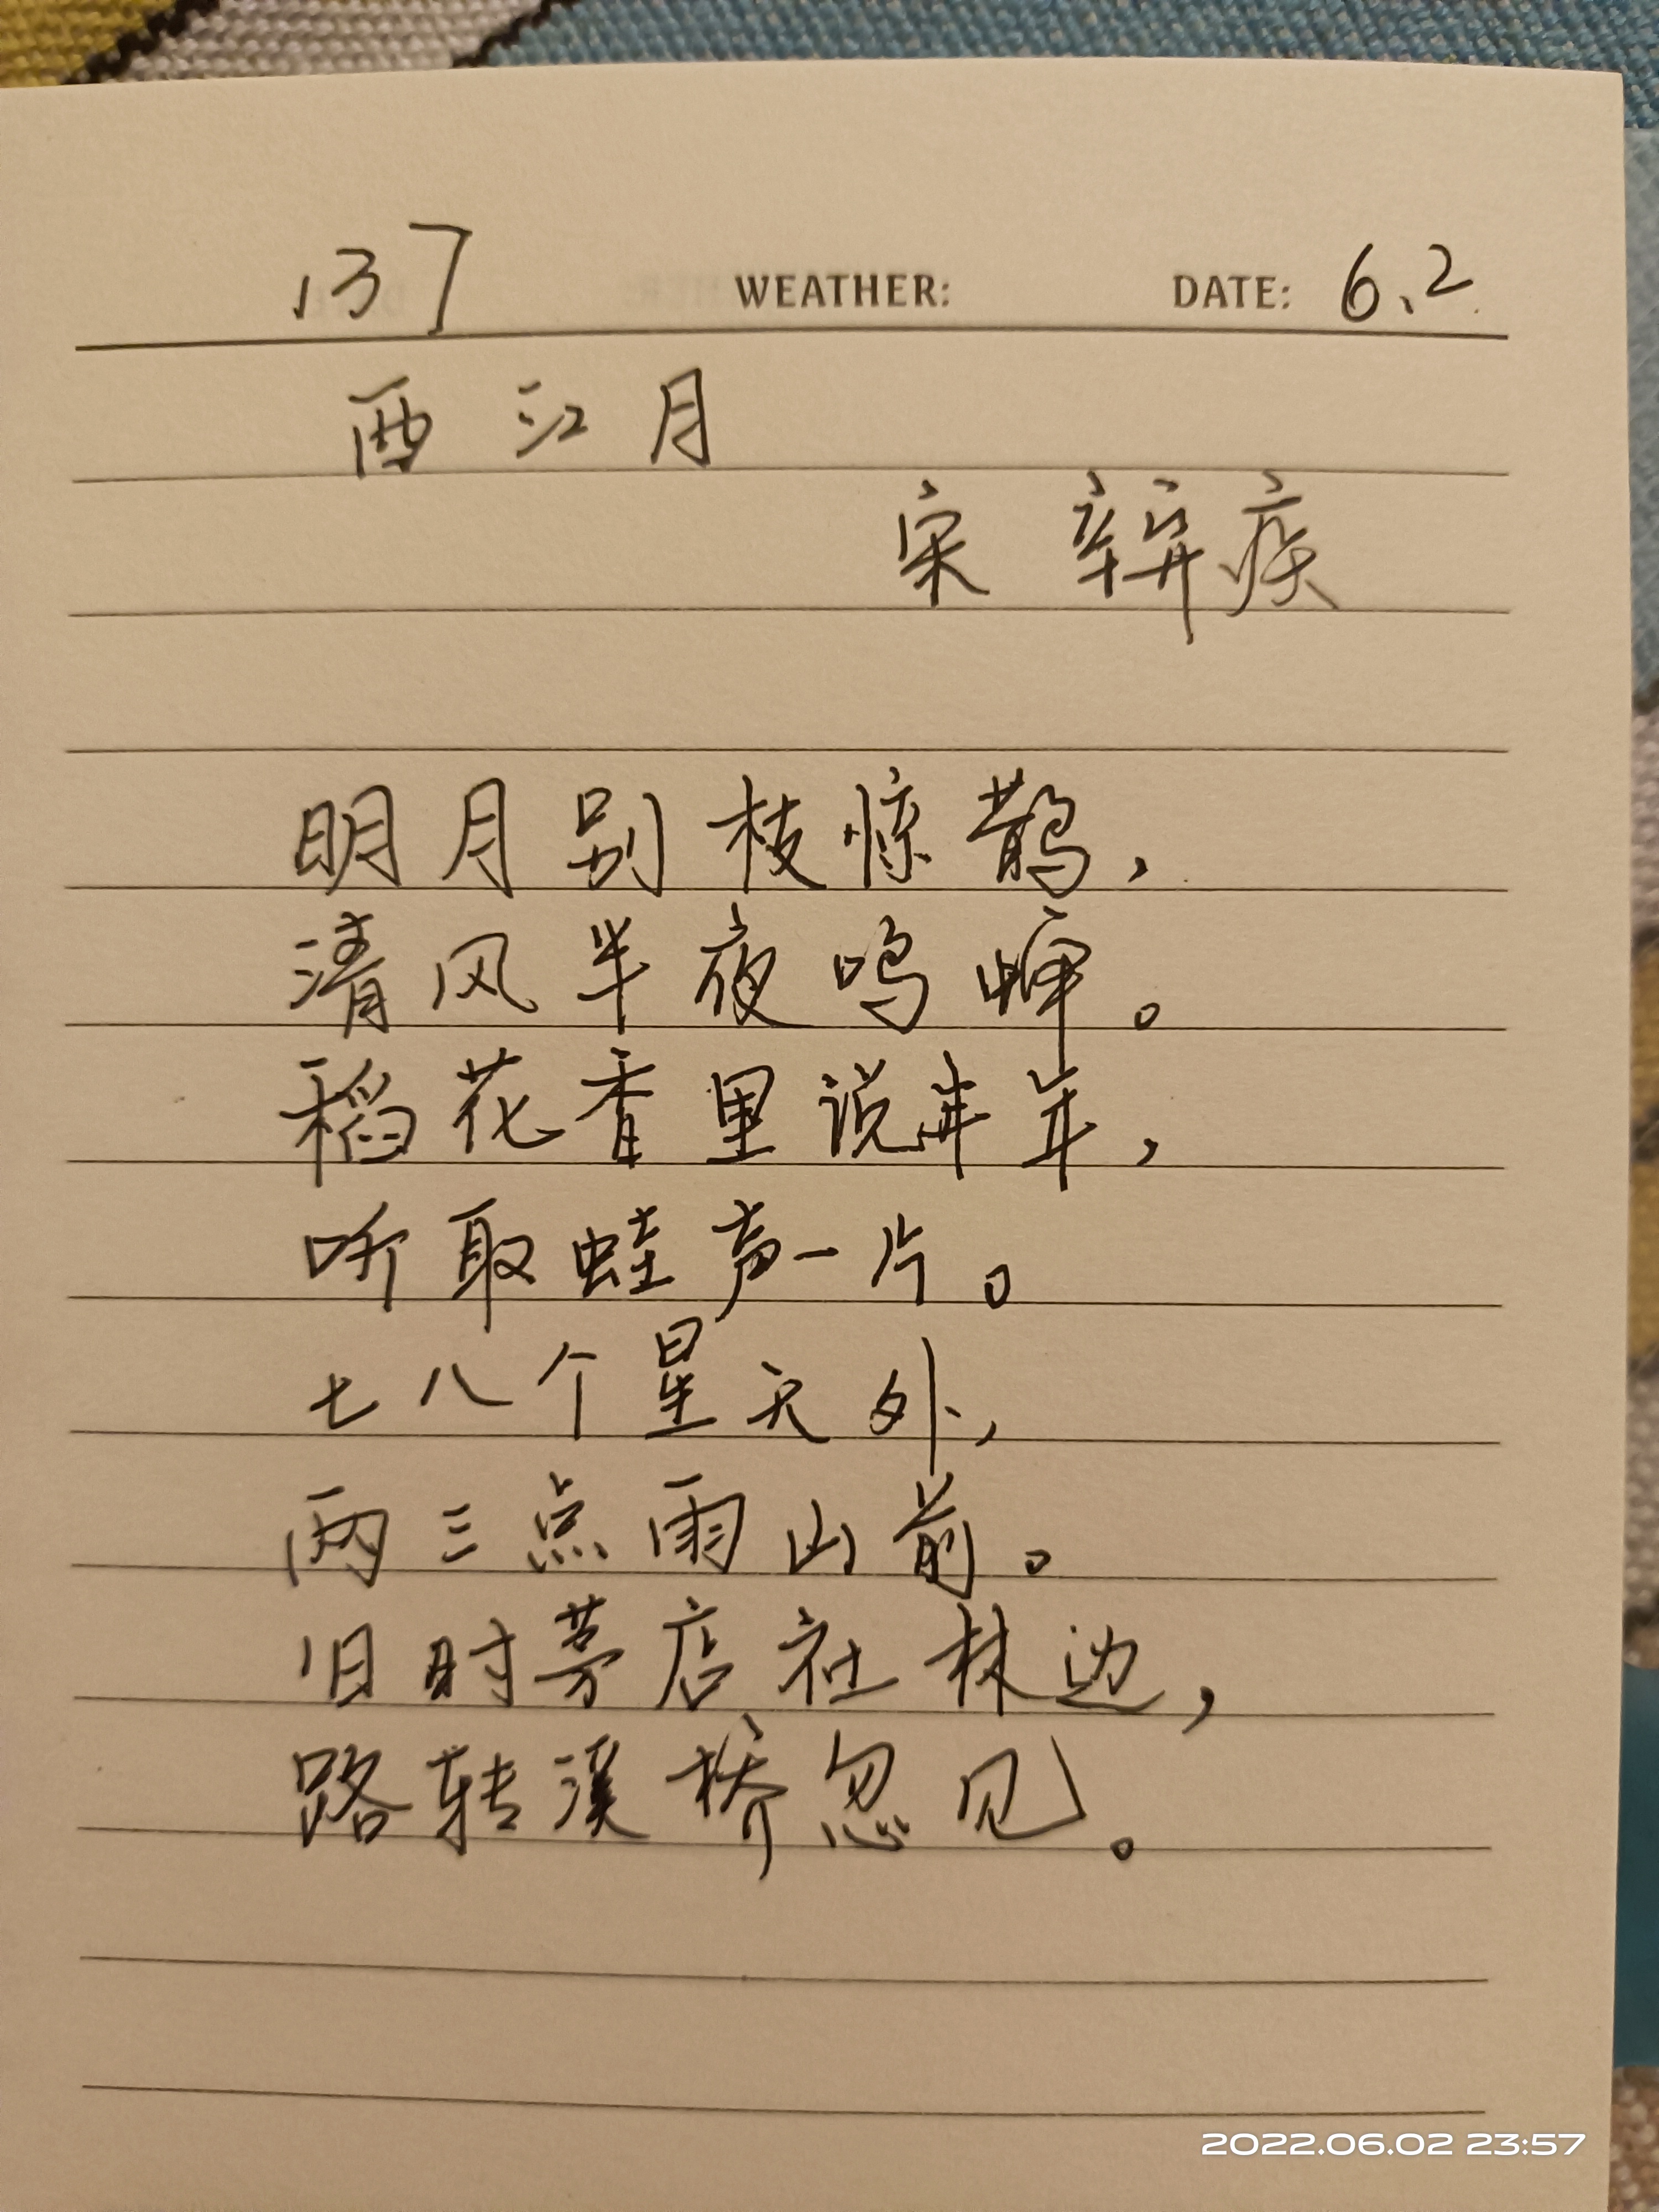 137 WEATHER: DATE: 6.2
西江月
宋 辛弃疾
明月别枝惊鹊，
清风半夜鸣蝉。
稻花香里说丰年，
听取蛙声一片。
七八个星天外，
两三点雨山前。
旧时茅店社林边，
路转溪桥忽见。
2022.06.02 23:57